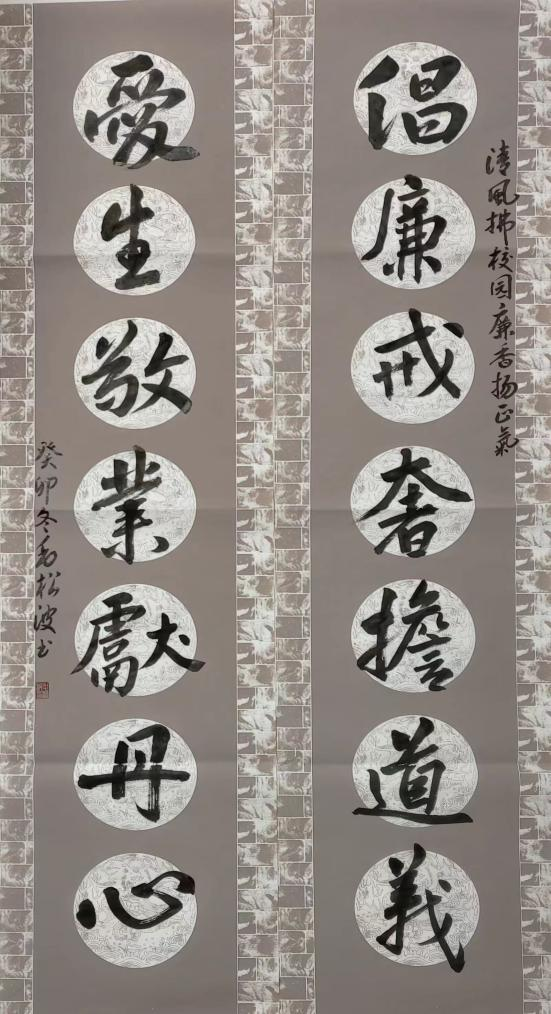 清风拂校园廉香扬正氣
倡廉戒奢擔道義
愛生敬業獻丹心
癸卯冬松波书